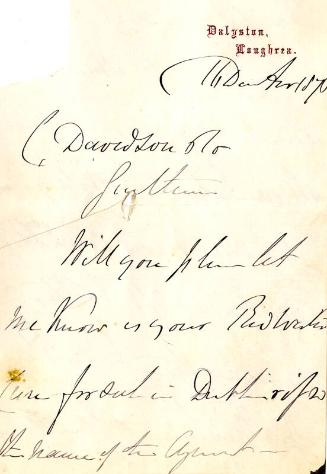 Dalyston,
Loughrea.
C. Davidson & Co
Gentlemen
Will you please let
me know is your Red Water
Cure for sale in Dublin & if so
the name of the Agent